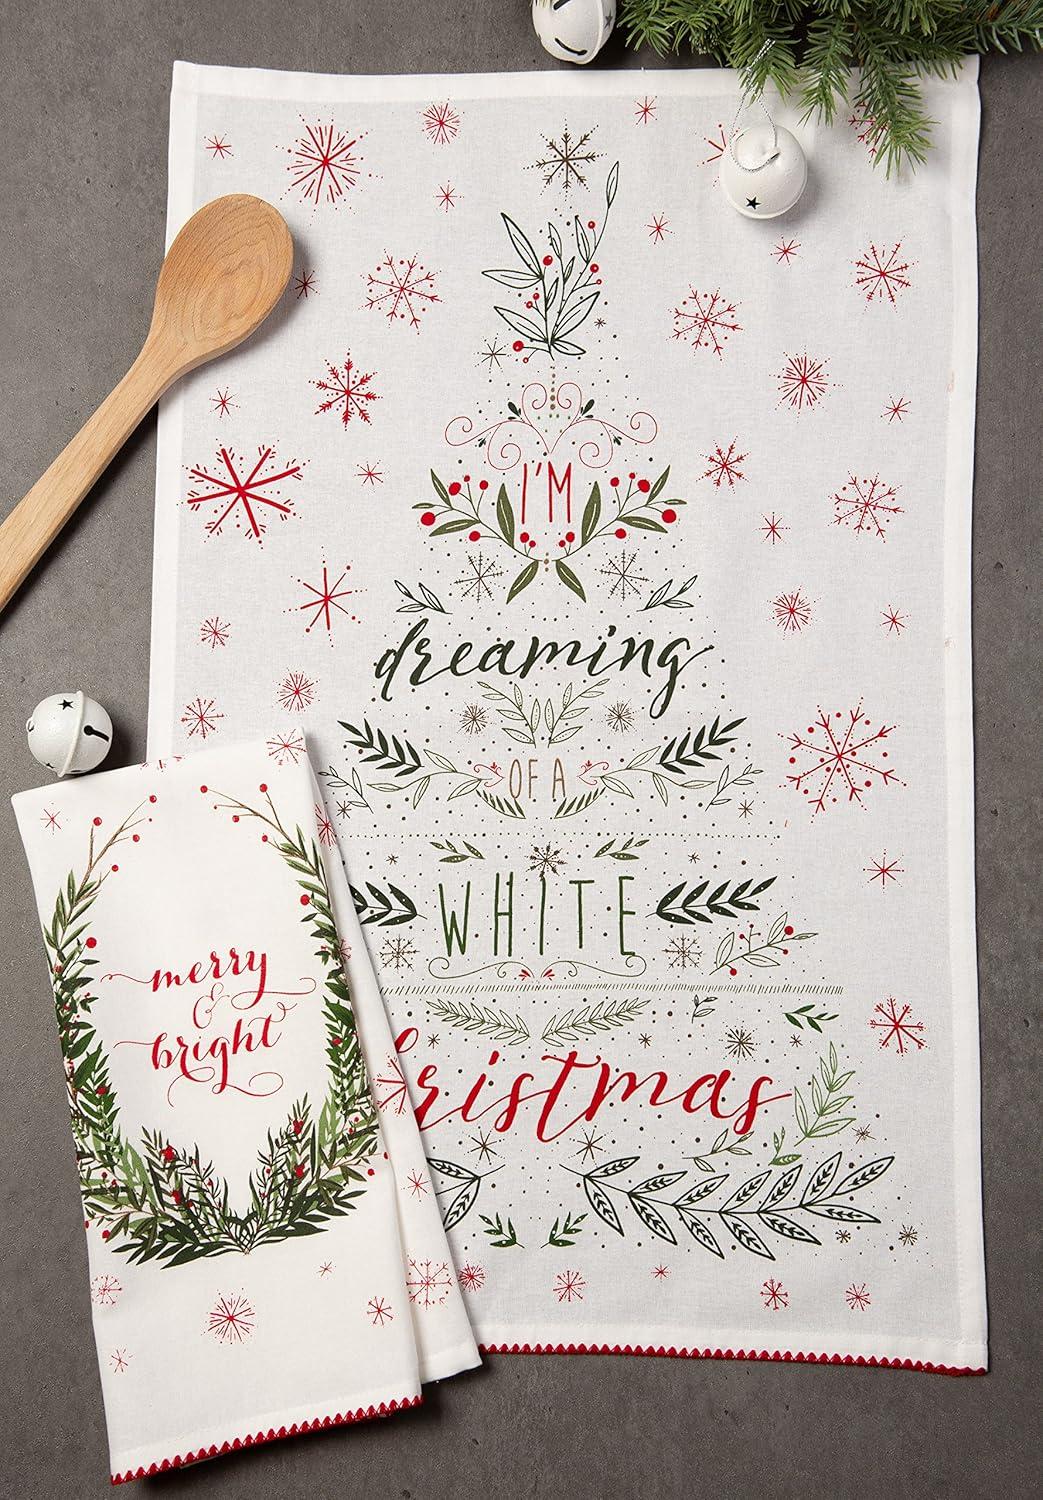 I'M
dreaming
OF A
WHITE
christmas
merry
&
bright